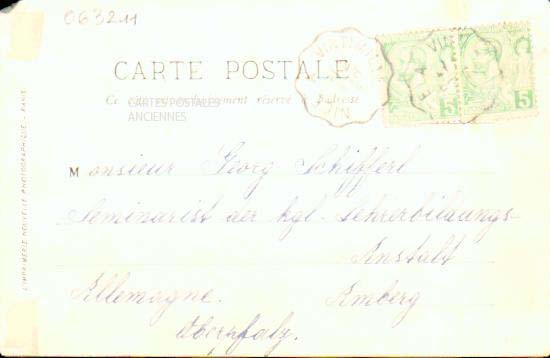 063211
CARTE POSTALE
Ce côté est exclusivement réservé à l'adresse
CARTES POSTALES
ANCIENNES
5
5
Monsieur Georg Schifferl
Seminarist der kgl. Lehrerbildungs-
Anstalt
Allemagne. Amberg
Oberpfalz.
IMPRIMERIE NOUVELLE PHOTOGRAPHIQUE - PARIS